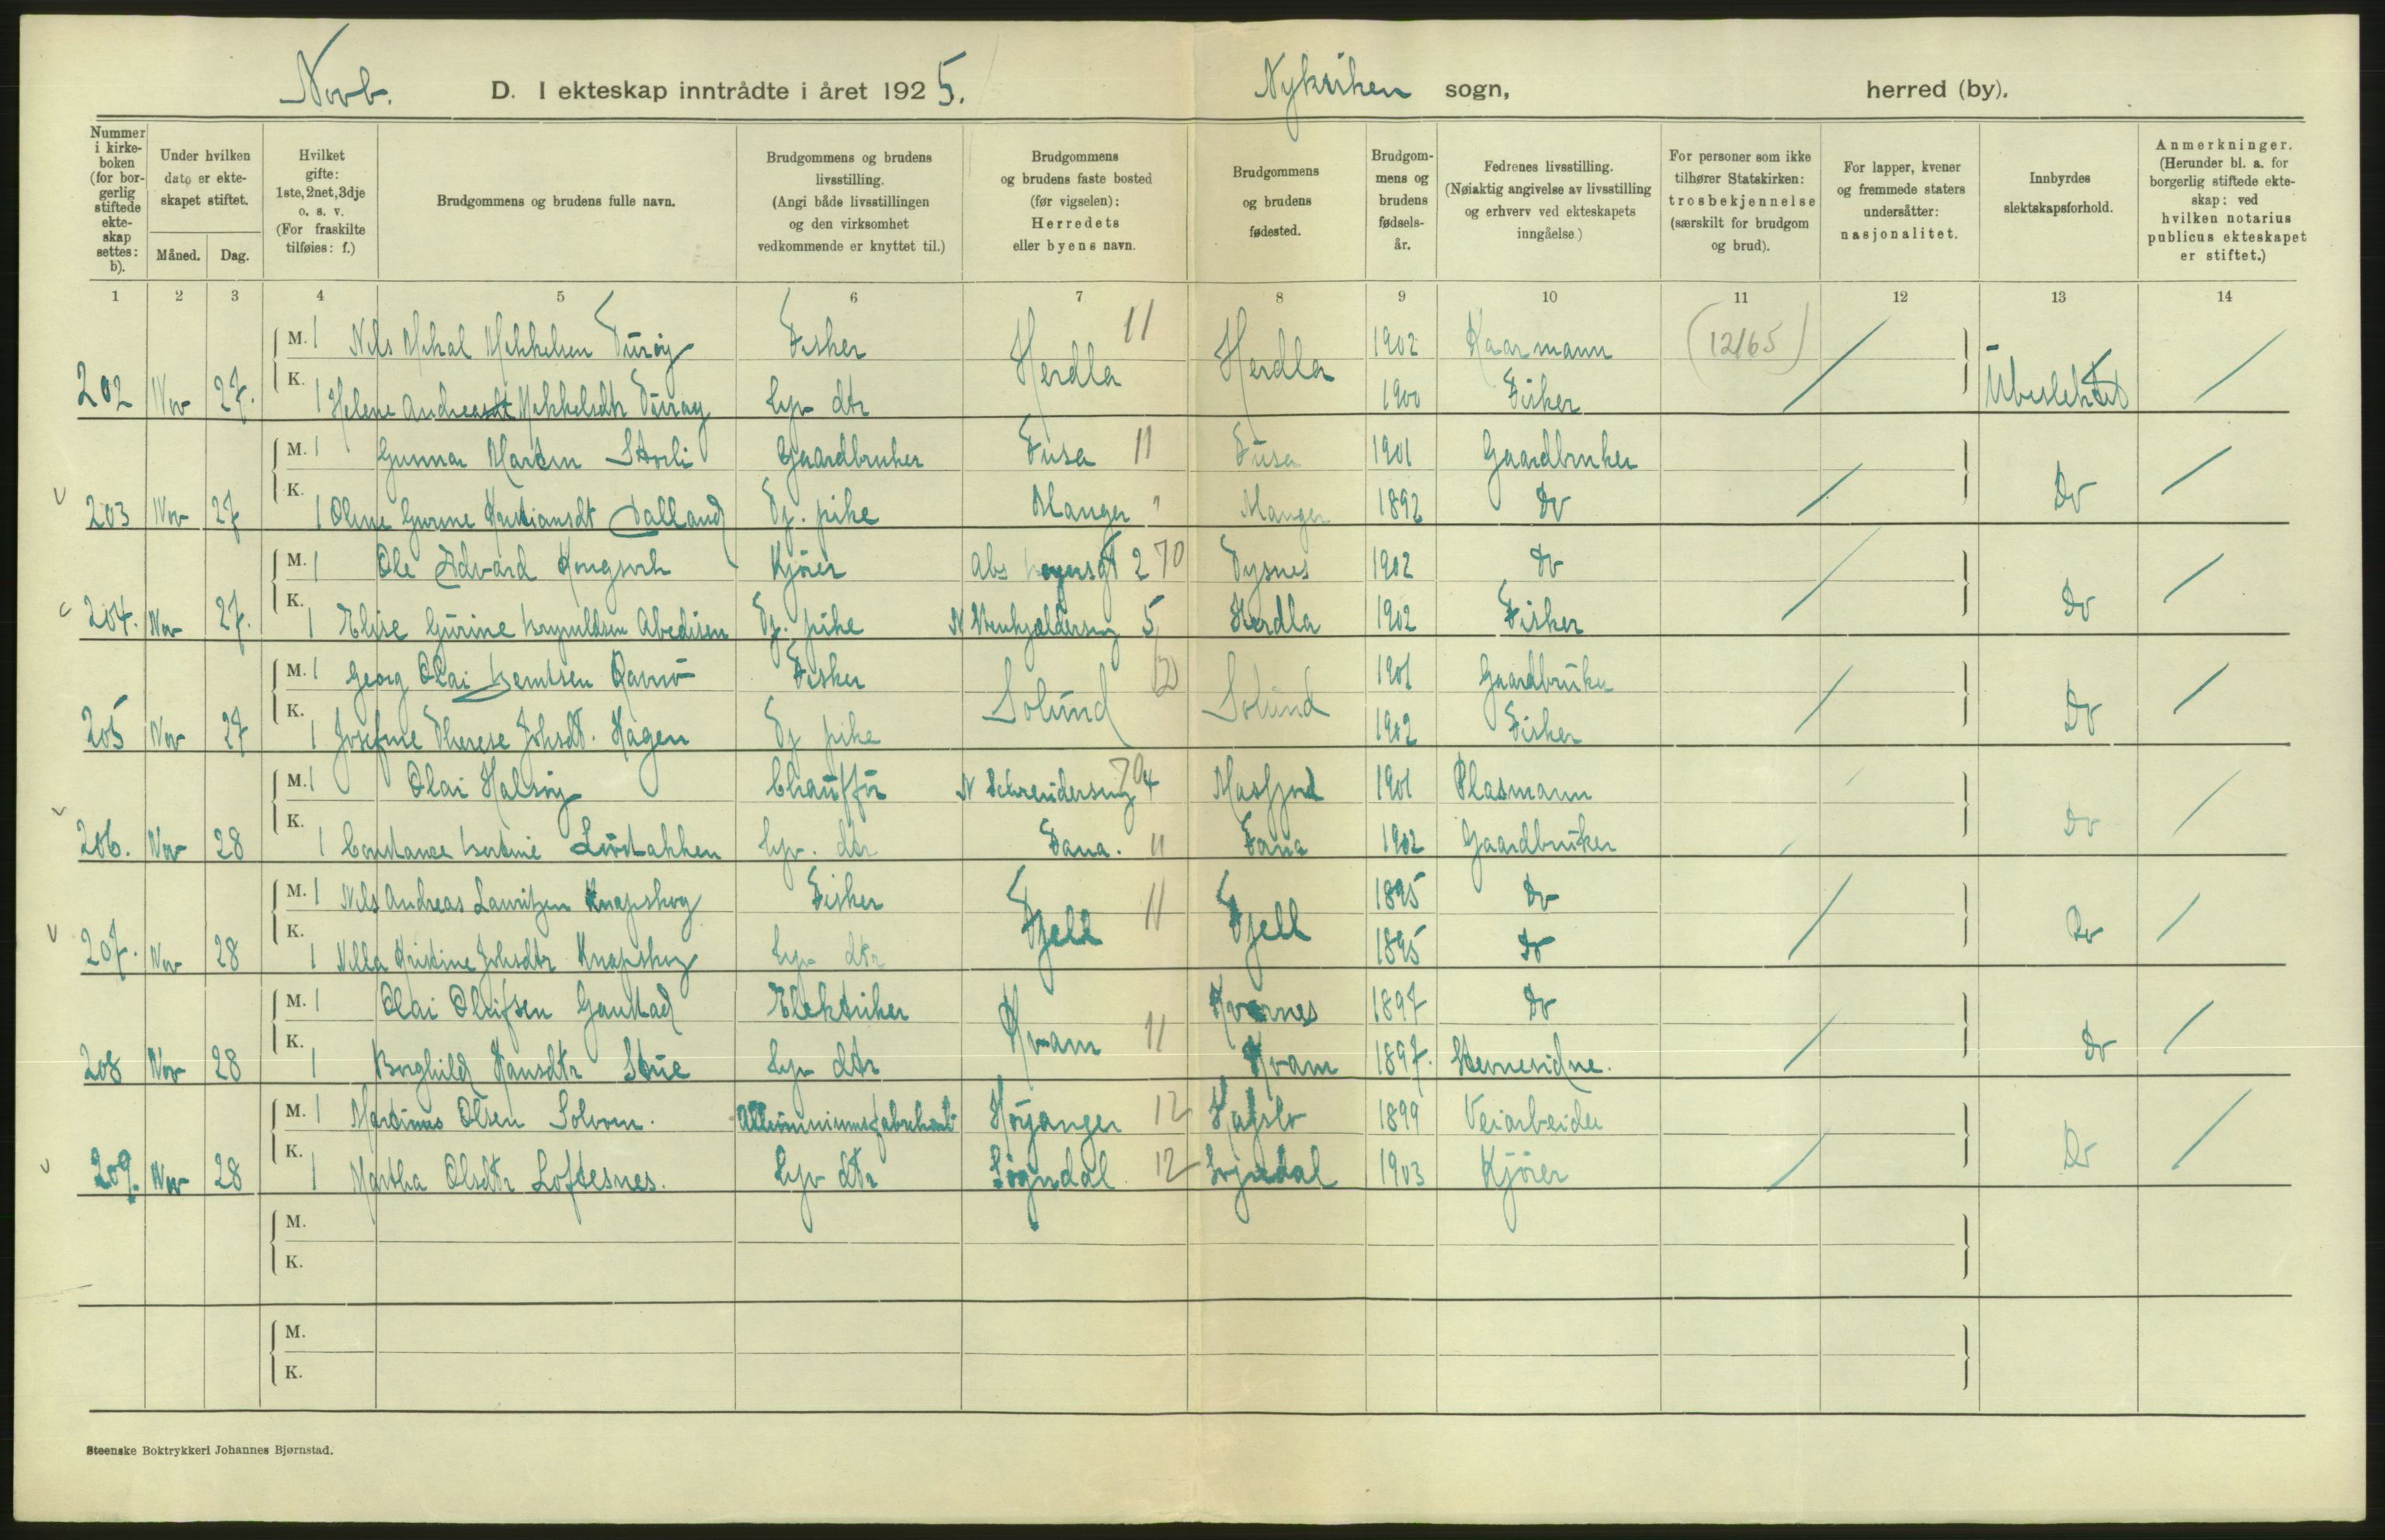 Novb.
D. I ekteskap inntrådte i året 1925.
Nykirken sogn,
herred (by).
Nummer i kirke-boken (for bor-gerlig stiftede ekte-skap settes: b).
Under hvilken dato er ekte-skapet stiftet.
Måned. Dag.
Hvilket gifte: 1ste, 2net, 3dje o. s. v. (For fraskilte tilføies: f.)
Brudgommens og brudens fulle navn.
Brudgommens og brudens livsstilling. (Angi både livsstillingen og den virksomhet vedkommende er knyttet til.)
Brudgommens og brudens faste bosted (før vigselen): Herredets eller byens navn.
Brudgommens og brudens fødested.
Brudgom-mens og brudens fødsels-år.
Fedrenes livsstilling. (Nøiaktig angivelse av livsstilling og erhverv ved ekteskapets inngåelse.)
For personer som ikke tilhører Statskirken: trosbekjennelse (særskilt for brudgom og brud).
For lapper, kvener og fremmede staters undersåtter: nasjonalitet.
Innbyrdes slektskapsforhold.
Anmerkninger. (Herunder bl. a. for borgerlig stiftede ekte-skap: ved hvilken notarius publicus ekteskapet er stiftet.)
1 2 3 4 5 6 7 8 9 10 11 12 13 14
M. 1 Nils Mikal Mikkelsen Turøy Fisker Herdla 11 Herdla 1902 Kaarmann (12165)
202 Nov 27. K. 1 Helene Mikkelsdtr Turøy hjv dtr 1900 Fisker Ubeslektet
M. 1 Gunnar Martin Storli Gaardbruker Fusa 11 Fusa 1901 Gaardbruker
203 Nov 27 K. 1 Oline Gurine Kristiansdt Dalland Tj. pike Manger " Manger 1892 Do Do
M. 1 Ole Edvard Kongsvik Kjører 2 70 Tysnes 1902 Do
204. Nov 27. K. 1 Elise Gurine Tj. pike 5 Herdla 1902 Fisker Do
M. 1 Georg Olai Berntsen Fisker Solund 12 Solund 1901 Gaardbruker
205 Nov 27 K. 1 Josefine Therese Johsdt. Hagen Tj pike 1902 Fisker Do
M. 1 Olai Halsøy Chauffør N 70 4 Masfjord 1901 Plasmann
206. Nov 28 K. 1 Constance Bertine Løvstakken hjv. dtr Fana. 11 Fana 1902 Gaardbruker Do
M. 1 Nils Andreas Lauritzen Knapskog Fisker Fjell 11 Fjell 1895 Do
207. Nov 28 K. 1 Nilla Kristine Johsdtr Knapskog hjv dtr 1895 Do Do
M. 1 Olai Olufsen Gaustad Elektriker Kvam 11 Kvernes 1897 Do
208 Nov 28 K. 1 Borghild Hansdtr Stue hjv dtr Kvam 1897. Do
M. 1 Martinus Olsen Solvorn. Høyanger 12 Hafslo 1899 Veiarbeider
209. Nov 28 K. 1 Martha Olsdtr Loftesnes. hjv dtr Sogndal. 12 Sogndal 1903 Kjører Do
M.
K.
M.
K.
Steenske Boktrykkeri Johannes Bjørnstad.